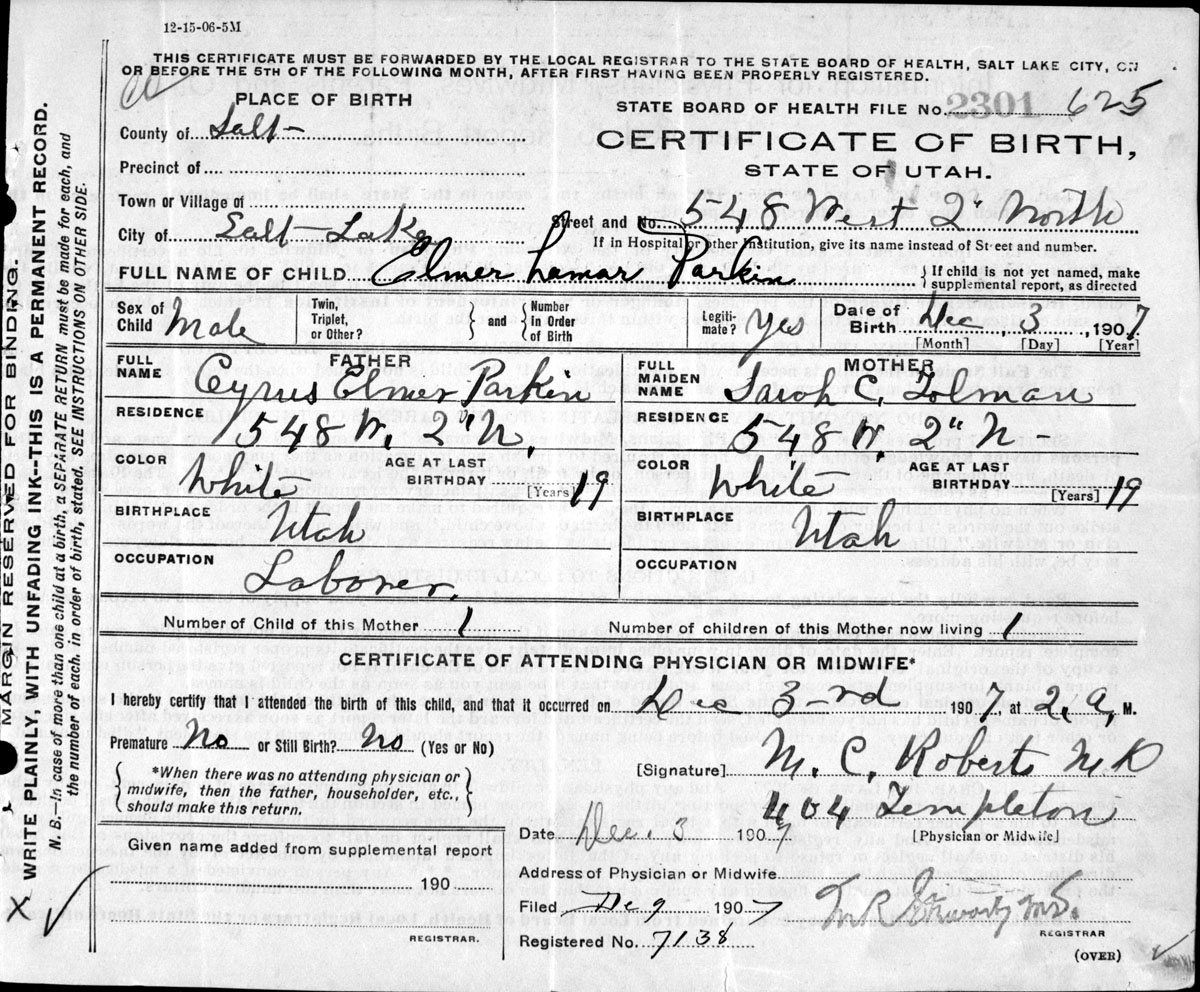 12-15-06-5M
THIS CERTIFICATE MUST BE FORWARDED BY THE LOCAL REGISTRAR TO THE STATE BOARD OF HEALTH, SALT LAKE CITY, ON
OR BEFORE THE 5TH OF THE FOLLOWING MONTH, AFTER FIRST HAVING BEEN PROPERLY REGISTERED.
PLACE OF BIRTH
STATE BOARD OF HEALTH FILE No. 2301 625
County of Salt-
CERTIFICATE OF BIRTH,
STATE OF UTAH.
Precinct of
Town or Village of
Street and No. 548 West 2" North
City of Salt-Lake
If in Hospital or other Institution, give its name instead of Street and number.
FULL NAME OF CHILD Elmer Lamar Parkin
{ If child is not yet named, make
supplemental report, as directed
Sex of Child Male
Twin, Triplet, or Other? } and { Number In Order of Birth
Legiti-mate? Yes
Date of Birth Dec 3, 1907
[Month] [Day] [Year]
FATHER
FULL NAME Cyrus Elmer Parkin
RESIDENCE 548 W. 2" N.
COLOR White
AGE AT LAST BIRTHDAY 19 [Years]
BIRTHPLACE Utah
OCCUPATION Laborer.
MOTHER
FULL MAIDEN NAME Sarah C. Tolman
RESIDENCE 548 W. 2" N
COLOR White
AGE AT LAST BIRTHDAY 19 [Years]
BIRTHPLACE Utah
OCCUPATION
Number of Child of this Mother 1
Number of children of this Mother now living 1
CERTIFICATE OF ATTENDING PHYSICIAN OR MIDWIFE*
I hereby certify that I attended the birth of this child, and that it occurred on Dec 3rd 1907, at 2. a, M.
Premature No or Still Birth? No (Yes or No)
{ *When there was no attending physician or
midwife, then the father, householder, etc.,
should make this return. }
[Signature] M. C. Roberts M.D
404 Templeton
[Physician or Midwife]
Date Dec. 3 1907
Given name added from supplemental report
190
REGISTRAR.
Address of Physician or Midwife
Filed Dec 9 1907
REGISTRAR
Registered No. 7138
(OVER)
MARGIN RESERVED FOR BINDING.
WRITE PLAINLY, WITH UNFADING INK--THIS IS A PERMANENT RECORD.
N. B.—In case of more than one child at a birth, a SEPARATE RETURN must be made for each, and
the number of each, in order of birth, stated. SEE INSTRUCTIONS ON OTHER SIDE.